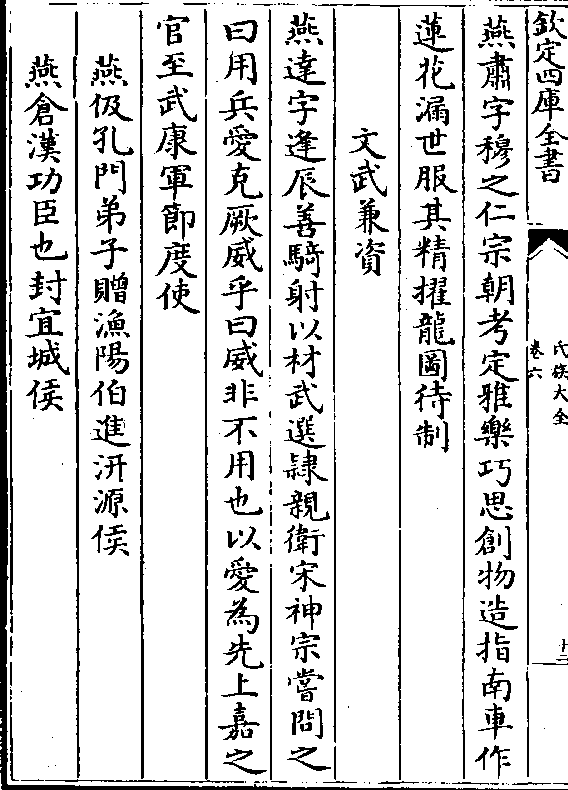 欽定四庫全書
氏族大全
卷六
十三
燕肅字穆之仁宗朝考定雅樂巧思創物造指南車作
蓮花漏世服其精擢龍圖待制
文武兼資
燕達字逢辰善騎射以材武選隷親衛宋神宗嘗問之
曰用兵愛克厥威乎曰威非不用也以愛為先上嘉之
官至武康軍節度使
燕伋孔門弟子贈漁陽伯進汧源侯
燕倉漢功臣也封宜城侯